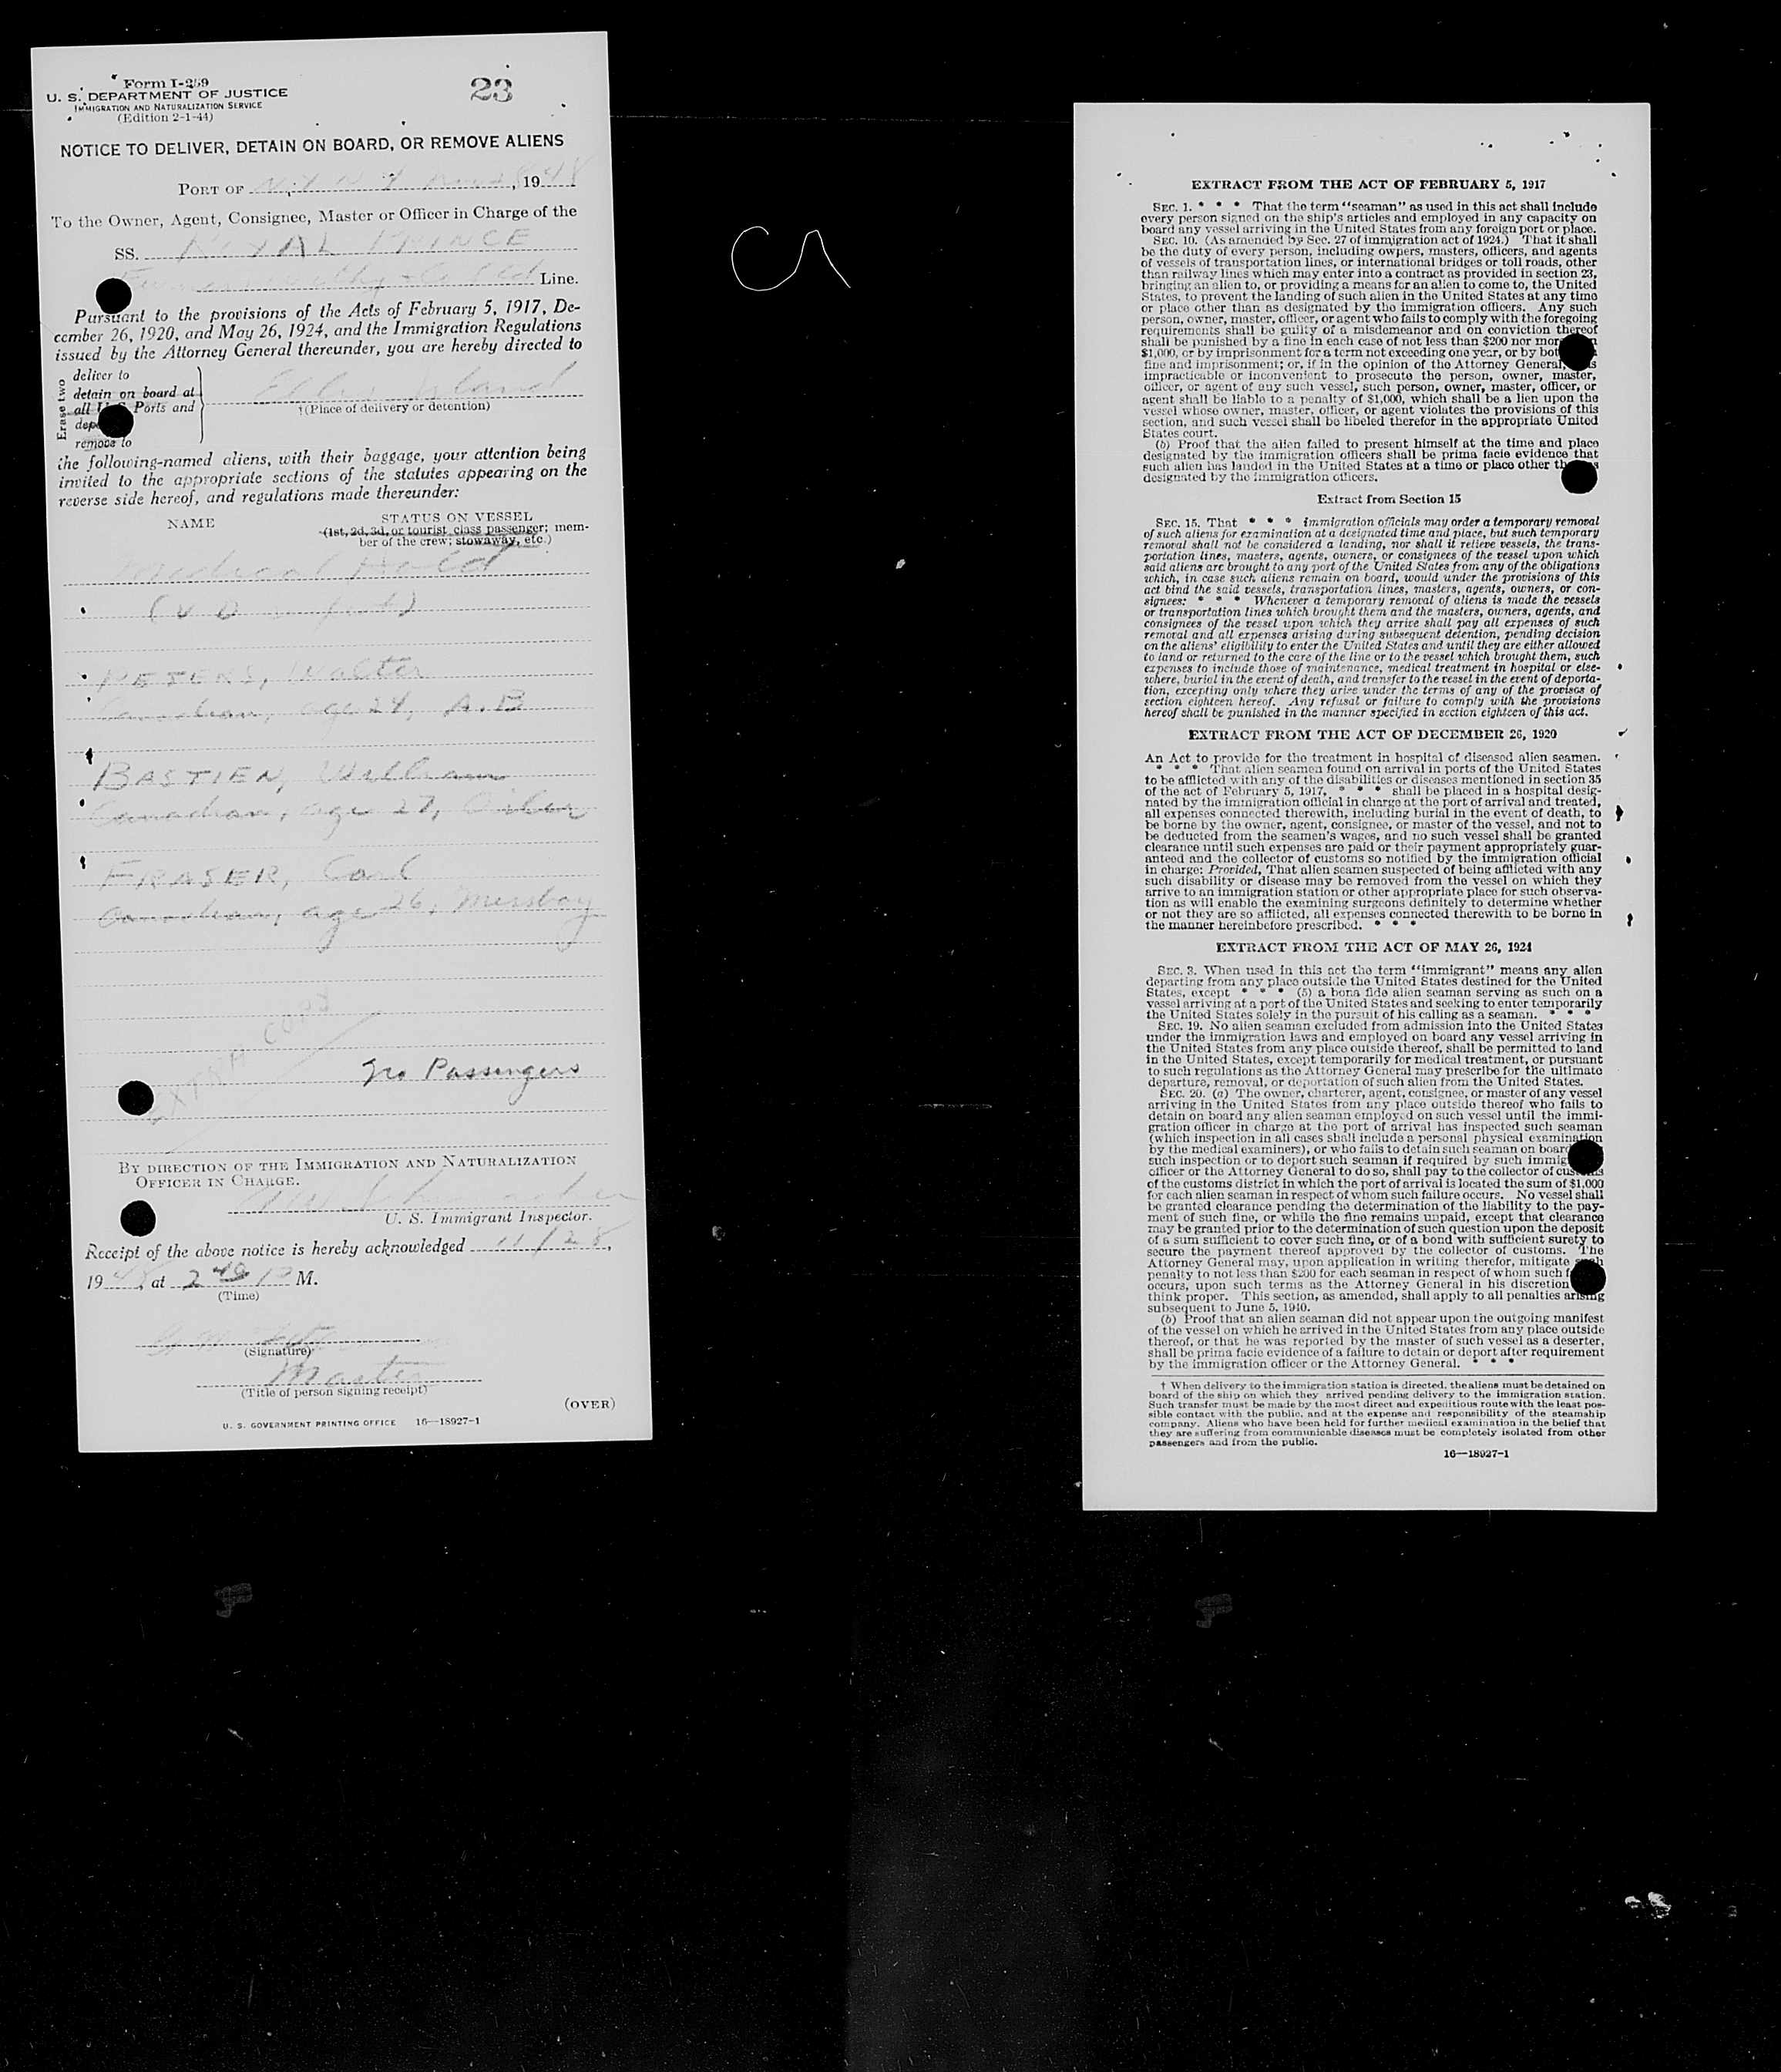 Form I-259
U. S. DEPARTMENT OF JUSTICE
IMMIGRATION AND NATURALIZATION SERVICE
(Edition 2-1-44)
23
NOTICE TO DELIVER, DETAIN ON BOARD, OR REMOVE ALIENS
PORT OF N Y N Y, 1948
To the Owner, Agent, Consignee, Master or Officer in Charge of the
SS. ROYAL PRINCE
Line.
Pursuant to the provisions of the Acts of February 5, 1917, De-
cember 26, 1920, and May 26, 1924, and the Immigration Regulations
issued by the Attorney General thereunder, you are hereby directed to
Erase two
deliver to
detain on board at
all U. S. Ports and
remove to
Ellis Island
†(Place of delivery or detention)
the following-named aliens, with their baggage, your attention being
invited to the appropriate sections of the statutes appearing on the
reverse side hereof, and regulations made thereunder:
NAME
STATUS ON VESSEL
(1st, 2d, 3d, or tourist class passenger; mem-
ber of the crew; stowaway, etc.)
Medical Hold
PETERS, Walter
Canadian, age 24, A.B
BASTIEN, William
Canadian, age 27, Oiler
FRASER, Carl
Canadian, age 26, Messboy
EXTRA COPY
No Passengers
BY DIRECTION OF THE IMMIGRATION AND NATURALIZATION
OFFICER IN CHARGE.
U. S. Immigrant Inspector.
Receipt of the above notice is hereby acknowledged 11/28,
1948, at 2 40 P M.
(Time)
(Signature)
Master
(Title of person signing receipt)
(OVER)
U. S. GOVERNMENT PRINTING OFFICE 16—18927-1
EXTRACT FROM THE ACT OF FEBRUARY 5, 1917
SEC. 1. * * * That the term "seaman" as used in this act shall include
every person signed on the ship's articles and employed in any capacity on
board any vessel arriving in the United States from any foreign port or place.
SEC. 10. (As amended by Sec. 27 of immigration act of 1924.) That it shall
be the duty of every person, including owners, masters, officers, and agents
of vessels of transportation lines, or international bridges or toll roads, other
than railway lines which may enter into a contract as provided in section 23,
bringing an alien to, or providing a means for an alien to come to, the United
States, to prevent the landing of such alien in the United States at any time
or place other than as designated by the immigration officers. Any such
person, owner, master, officer, or agent who fails to comply with the foregoing
requirements shall be guilty of a misdemeanor and on conviction thereof
shall be punished by a fine in each case of not less than $200 nor more
$1,000, or by imprisonment for a term not exceeding one year, or by both
fine and imprisonment; or, if in the opinion of the Attorney General, is
impracticable or inconvenient to prosecute the person, owner, master,
officer, or agent of any such vessel, such person, owner, master, officer, or
agent shall be liable to a penalty of $1,000, which shall be a lien upon the
vessel whose owner, master, officer, or agent violates the provisions of this
section, and such vessel shall be libeled therefor in the appropriate United
States court.
(b) Proof that the alien failed to present himself at the time and place
designated by the immigration officers shall be prima facie evidence that
such alien has landed in the United States at a time or place other than as
designated by the immigration officers.
Extract from Section 15
SEC. 15. That * * * immigration officials may order a temporary removal
of such aliens for examination at a designated time and place, but such temporary
removal shall not be considered a landing, nor shall it relieve vessels, the trans-
portation lines, masters, agents, owners, or consignees of the vessel upon which
said aliens are brought to any port of the United States from any of the obligations
which, in case such aliens remain on board, would under the provisions of this
act bind the said vessels, transportation lines, masters, agents, owners, or con-
signees: * * * Whenever a temporary removal of aliens is made the vessels
or transportation lines which brought them and the masters, owners, agents, and
consignees of the vessel upon which they arrive shall pay all expenses of such
removal and all expenses arising during subsequent detention, pending decision
on the aliens' eligibility to enter the United States and until they are either allowed
to land or returned to the care of the line or to the vessel which brought them, such
expenses to include those of maintenance, medical treatment in hospital or else-
where, burial in the event of death, and transfer to the vessel in the event of deporta-
tion, excepting only where they arise under the terms of any of the provisos of
section eighteen hereof. Any refusal or failure to comply with the provisions
hereof shall be punished in the manner specified in section eighteen of this act.
EXTRACT FROM THE ACT OF DECEMBER 26, 1920
An Act to provide for the treatment in hospital of diseased alien seamen.
* * * That alien seamen found on arrival in ports of the United States
to be afflicted with any of the disabilities or diseases mentioned in section 35
of the act of February 5, 1917, * * * shall be placed in a hospital desig-
nated by the immigration official in charge at the port of arrival and treated,
all expenses connected therewith, including burial in the event of death, to
be borne by the owner, agent, consignee, or master of the vessel, and not to
be deducted from the seamen's wages, and no such vessel shall be granted
clearance until such expenses are paid or their payment appropriately guar-
anteed and the collector of customs so notified by the immigration official
in charge: Provided, That alien seamen suspected of being afflicted with any
such disability or disease may be removed from the vessel on which they
arrive to an immigration station or other appropriate place for such observa-
tion as will enable the examining surgeons definitely to determine whether
or not they are so afflicted, all expenses connected therewith to be borne in
the manner hereinbefore prescribed. * * *
EXTRACT FROM THE ACT OF MAY 26, 1924
SEC. 3. When used in this act the term "immigrant" means any alien
departing from any place outside the United States destined for the United
States, except * * * (5) a bona fide alien seaman serving as such on a
vessel arriving at a port of the United States and seeking to enter temporarily
the United States solely in the pursuit of his calling as a seaman. * * *
SEC. 19. No alien seaman excluded from admission into the United States
under the immigration laws and employed on board any vessel arriving in
the United States from any place outside thereof, shall be permitted to land
in the United States, except temporarily for medical treatment, or pursuant
to such regulations as the Attorney General may prescribe for the ultimate
departure, removal, or deportation of such alien from the United States.
SEC. 20. (a) The owner, charterer, agent, consignee, or master of any vessel
arriving in the United States from any place outside thereof who fails to
detain on board any alien seaman employed on such vessel until the immi-
gration officer in charge at the port of arrival has inspected such seaman
(which inspection in all cases shall include a personal physical examination
by the medical examiners), or who fails to detain such seaman on board
such inspection or to deport such seaman if required by such immig
officer or the Attorney General to do so, shall pay to the collector of customs
of the customs district in which the port of arrival is located the sum of $1,000
for each alien seaman in respect of whom such failure occurs. No vessel shall
be granted clearance pending the determination of the liability to the pay-
ment of such fine, or while the fine remains unpaid, except that clearance
may be granted prior to the determination of such question upon the deposit
of a sum sufficient to cover such fine, or of a bond with sufficient surety to
secure the payment thereof approved by the collector of customs. The
Attorney General may, upon application in writing therefor, mitigate such
penalty to not less than $200 for each seaman in respect of whom such f
occurs, upon such terms as the Attorney General in his discretion
think proper. This section, as amended, shall apply to all penalties arising
subsequent to June 5, 1940.
(b) Proof that an alien seaman did not appear upon the outgoing manifest
of the vessel on which he arrived in the United States from any place outside
thereof, or that he was reported by the master of such vessel as a deserter,
shall be prima facie evidence of a failure to detain or deport after requirement
by the immigration officer or the Attorney General. * * *
† When delivery to the immigration station is directed, the aliens must be detained on
board of the ship on which they arrived pending delivery to the immigration station.
Such transfer must be made by the most direct and expeditious route with the least pos-
sible contact with the public, and at the expense and responsibility of the steamship
company. Aliens who have been held for further medical examination in the belief that
they are suffering from communicable diseases must be completely isolated from other
passengers and from the public.
16—18927-1